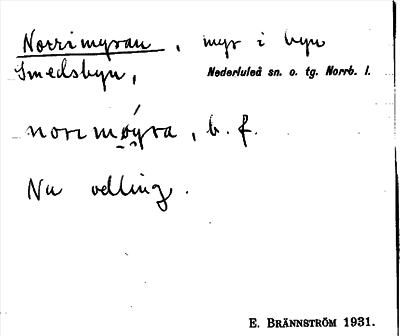 Norrimyran, myr i byn
Smedsbyn, Nederluleå sn. o. tg. Norrb. l.
norimøyra, b. f.
Nu odling.
E. BRÄNNSTRÖM 1931.